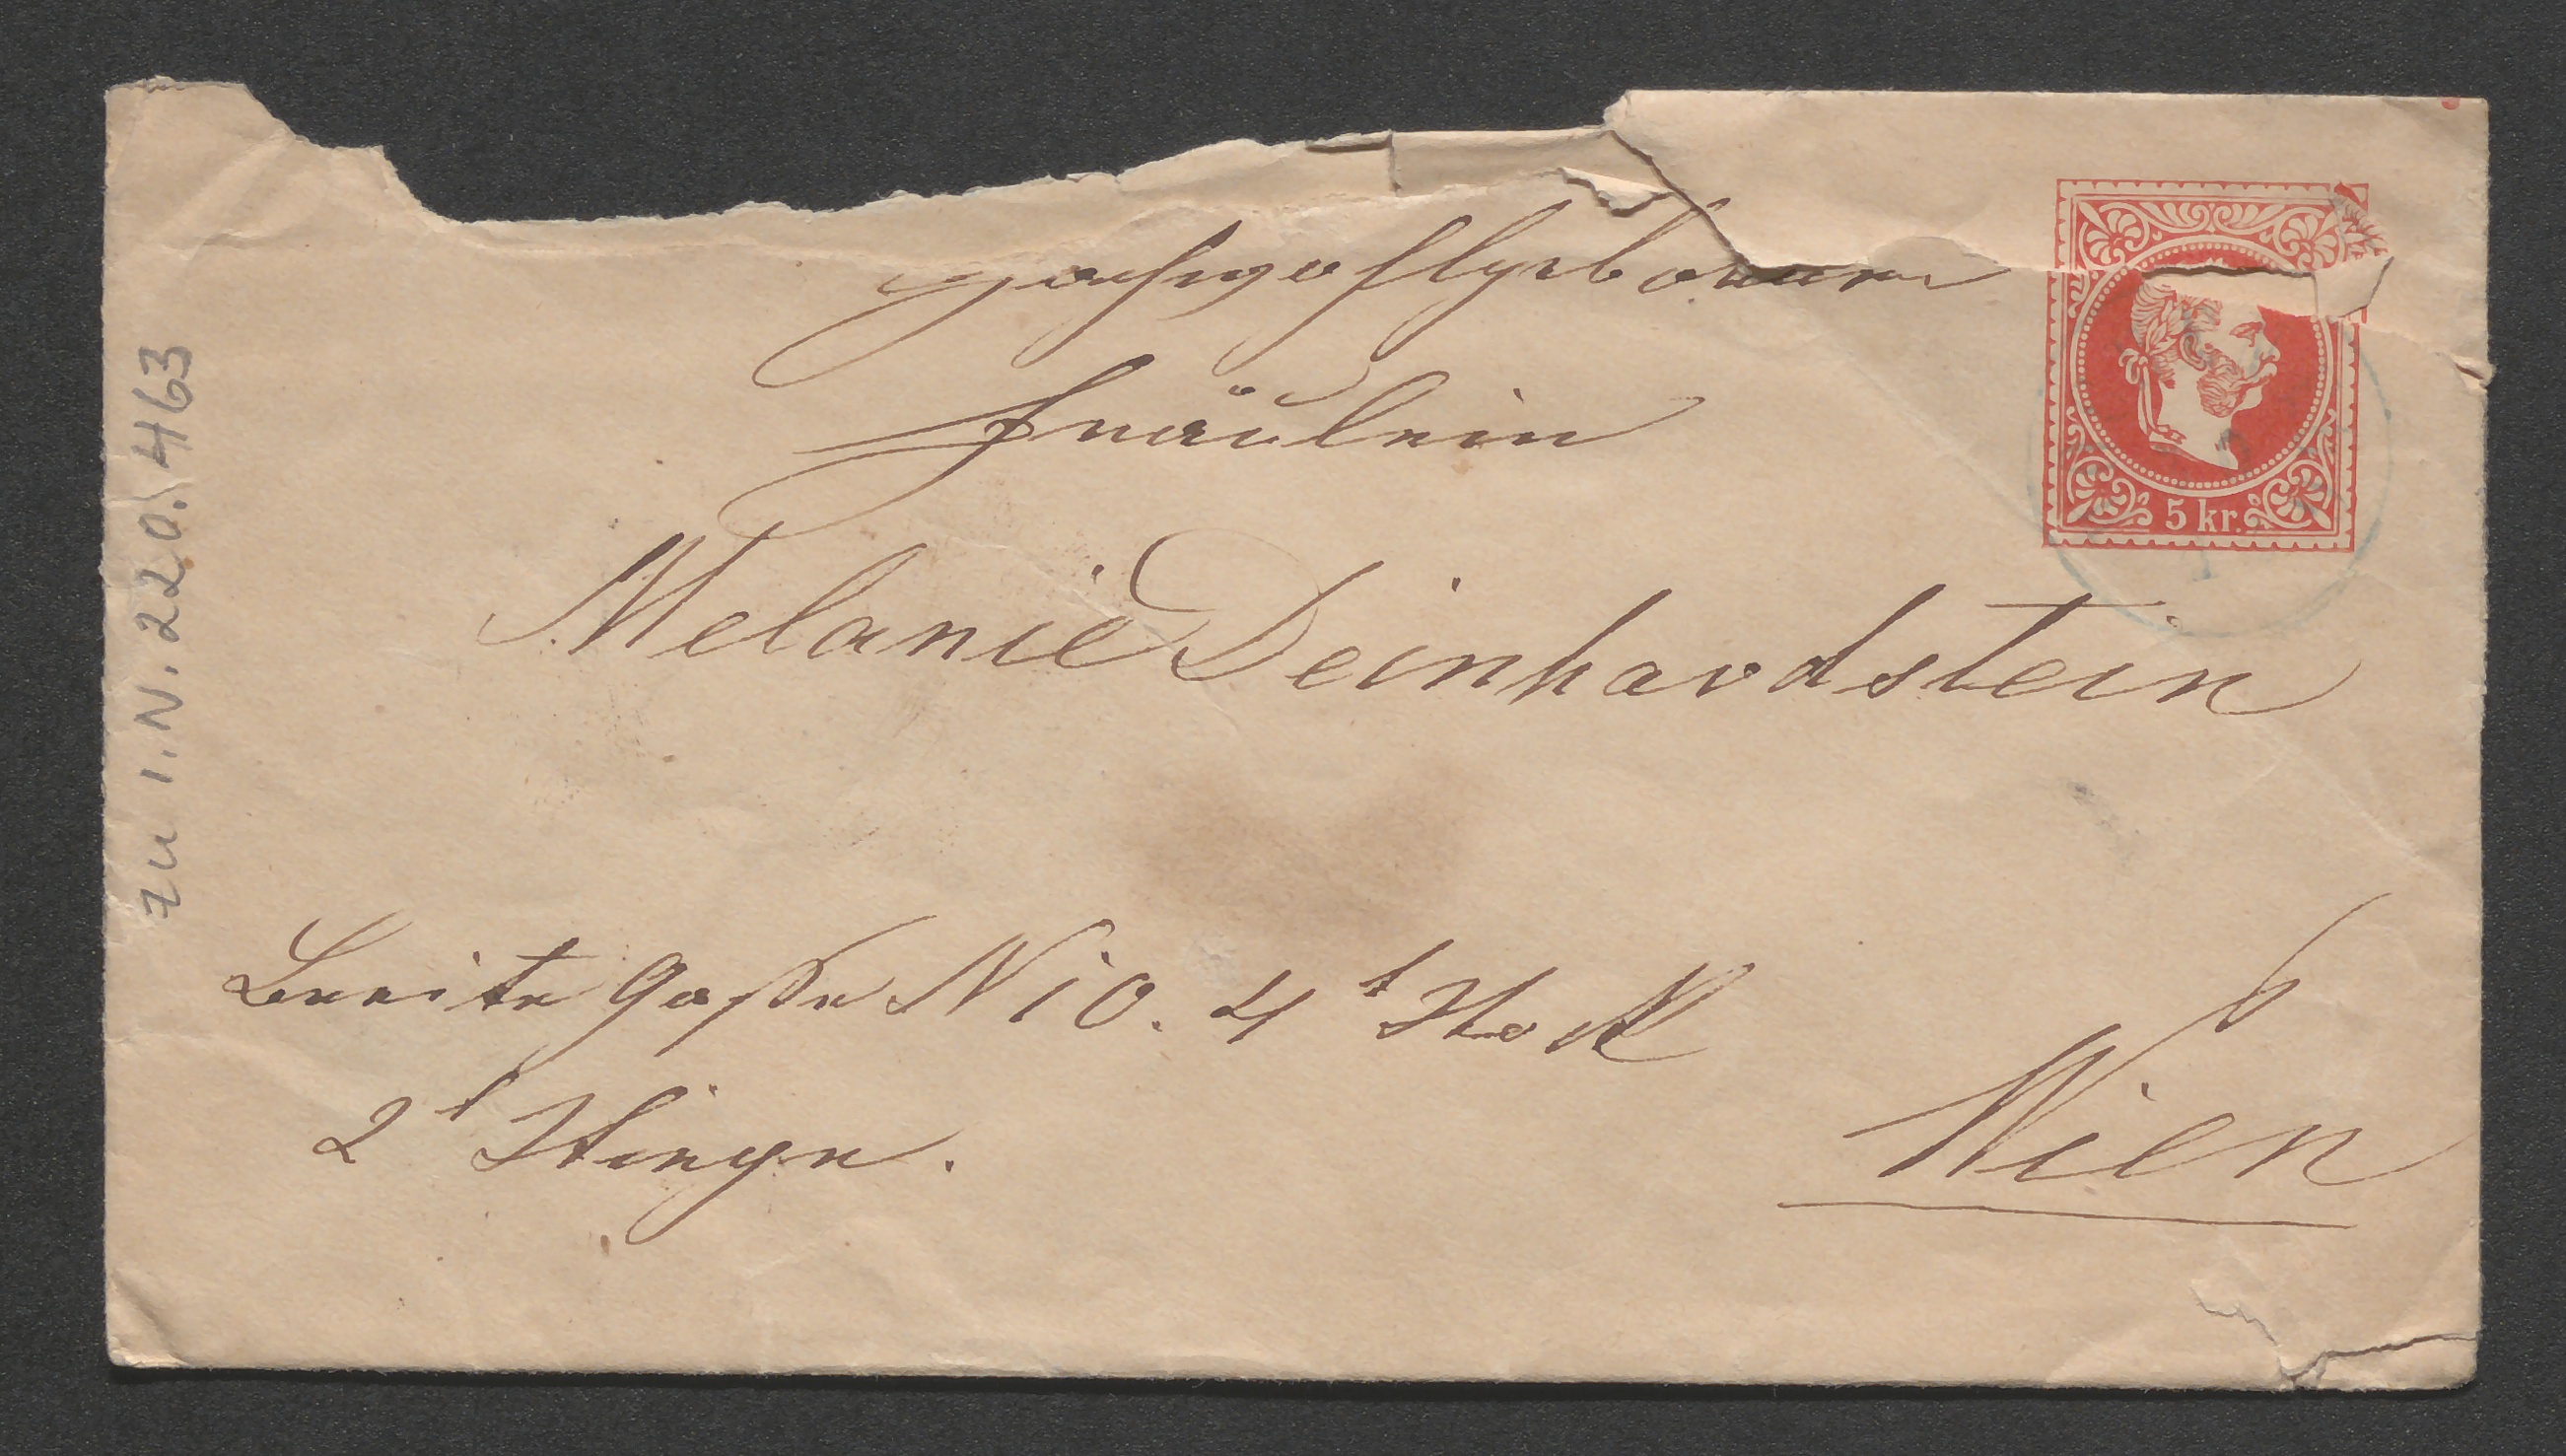 Hochwohlgeboren
Fräulein
Melanie Deinhardstein
Breite Gaße N 10. 4t Stock
2t Stiege.
Wien
5 kr.
zu I.N. 220.463